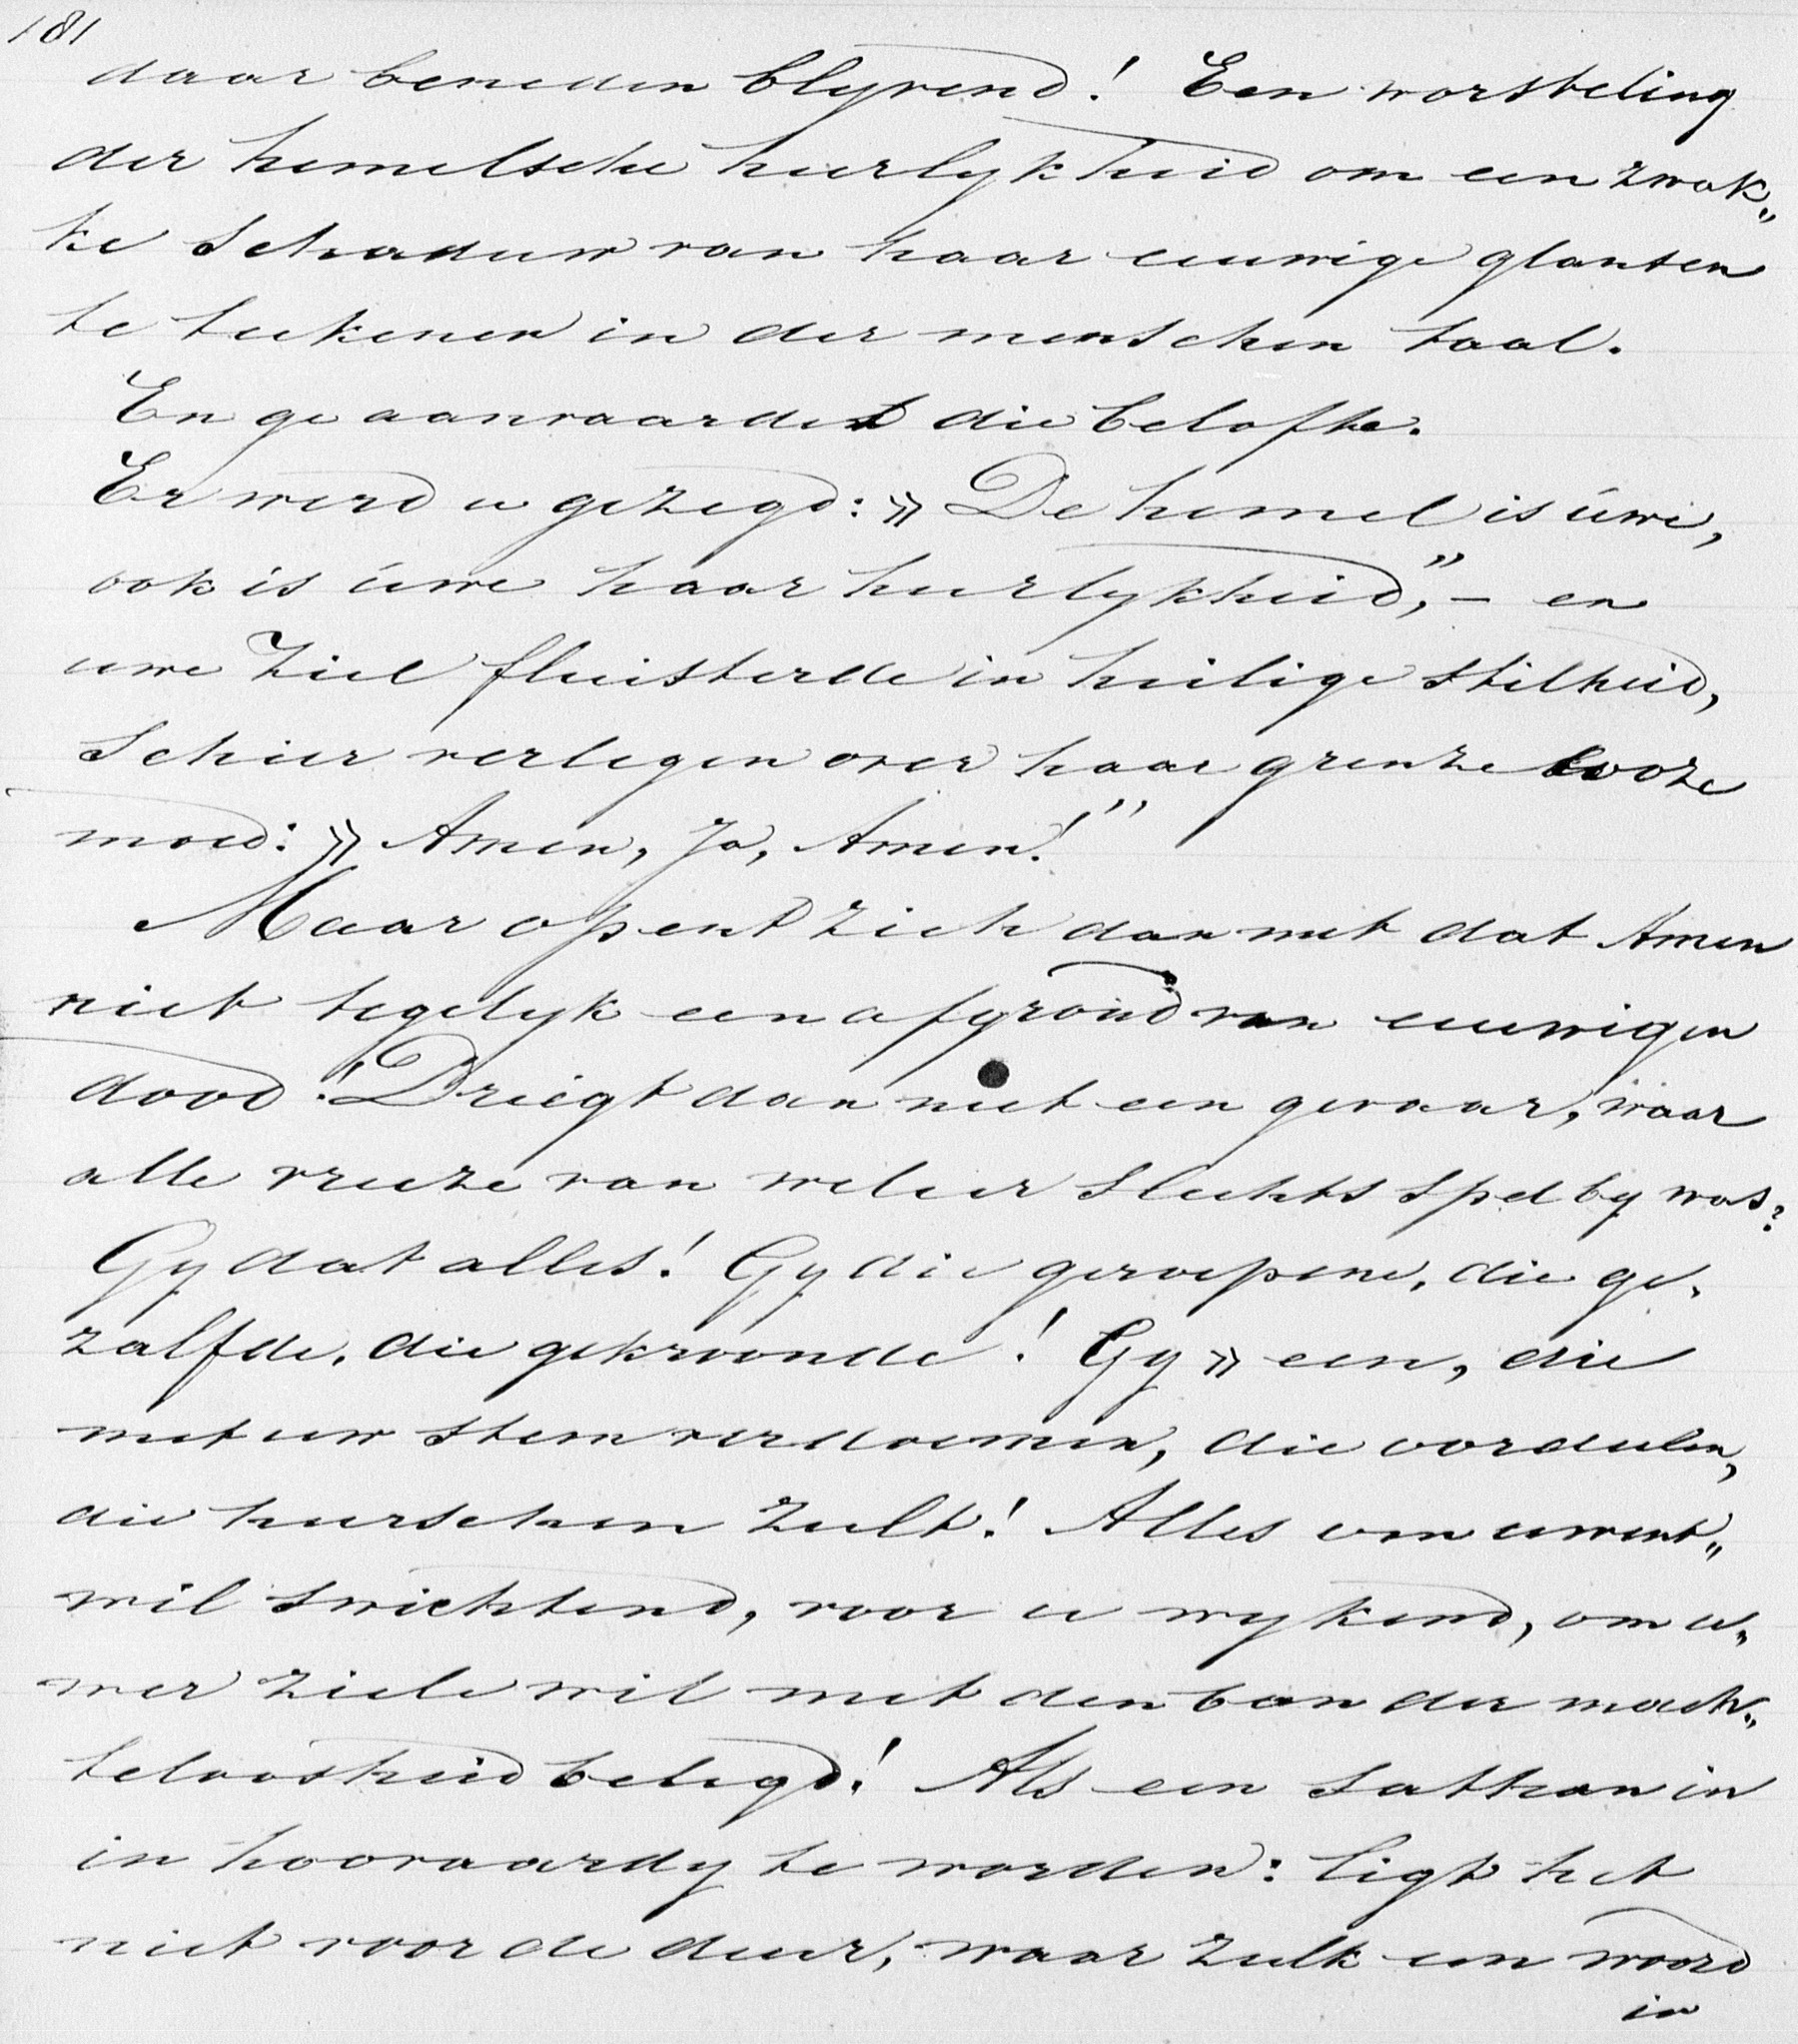 181
daar beneden blyvend! Een worsteling
der hemelsche heerlykheid om een zwak„
ke schaduw van haar eeuwige glansen
te teekenen in der menschen taal.
En ge aanvaardet die belofte.
Er werd u gezegd: » De hemel is úwe,
ook is úwe haar heerlykheid,” – en
uwe ziel fluisterde in heilige stilheid,
schier verlegen over haar grenzelooze
moed: » Amen, Ja, Amen!”
Maar opent zich dan met dat Amen
niet tegelyk een afgrond van eeuwigen
dood! Driegt dan niet een gevaar, waar
alle vreeze van weleer slechts spel by was?
Gy dat alles! Gy die geroepene, die ge„
zalfde, die gekroonde! Gy » een, die
met uw stem verdoemen, die oordeelen,
die heerschen zult! Alles om uwent„
wil swichtend, voor u wykend, om u„
wer ziele wil met den ban der mach„
teloosheid belegd! Als een Sathan in
in hoovaardy te worden: ligt het
niet voor de deur, waar zulk een woord
in